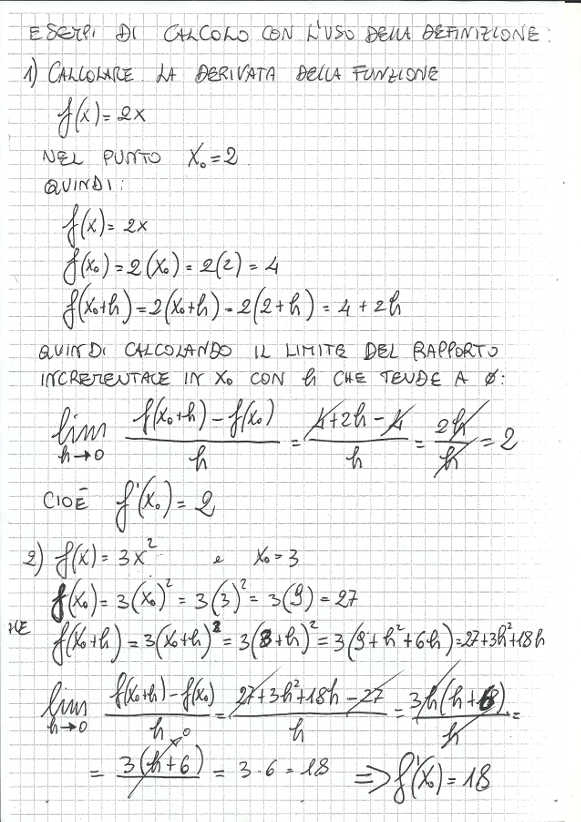 ESEMPI DI CALCOLO CON L'USO DELLA DEFINIZIONE:
1) CALCOLARE LA DERIVATA DELLA FUNZIONE
f(x) = 2x
NEL PUNTO X₀ = 2.
QUINDI:
f(x) = 2x
f(x₀) = 2(x₀) = 2(2) = 4
f(x₀+h) = 2(x₀+h) = 2(2+h) = 4 + 2h
QUINDI CALCOLANDO IL LIMITE DEL RAPPORTO
INCREMENTALE IN X₀ CON h CHE TENDE A 0:
lim h→0 (f(x₀+h) − f(x₀))/h = (4+2h−4)/h = 2h/h = 2
CIOÈ f'(x₀) = 2
2) f(x) = 3x² e x₀ = 3
f(x₀) = 3(x₀)² = 3(3)² = 3(9) = 27
f(x₀+h) = 3(x₀+h)² = 3(3+h)² = 3(9+h²+6h) = 27+3h²+18h
lim h→0 (f(x₀+h) − f(x₀))/h = (27+3h²+18h−27)/h = 3h(h+6)/h =
= 3(h+6) = 3·6 = 18 ⇒ f'(x₀) = 18